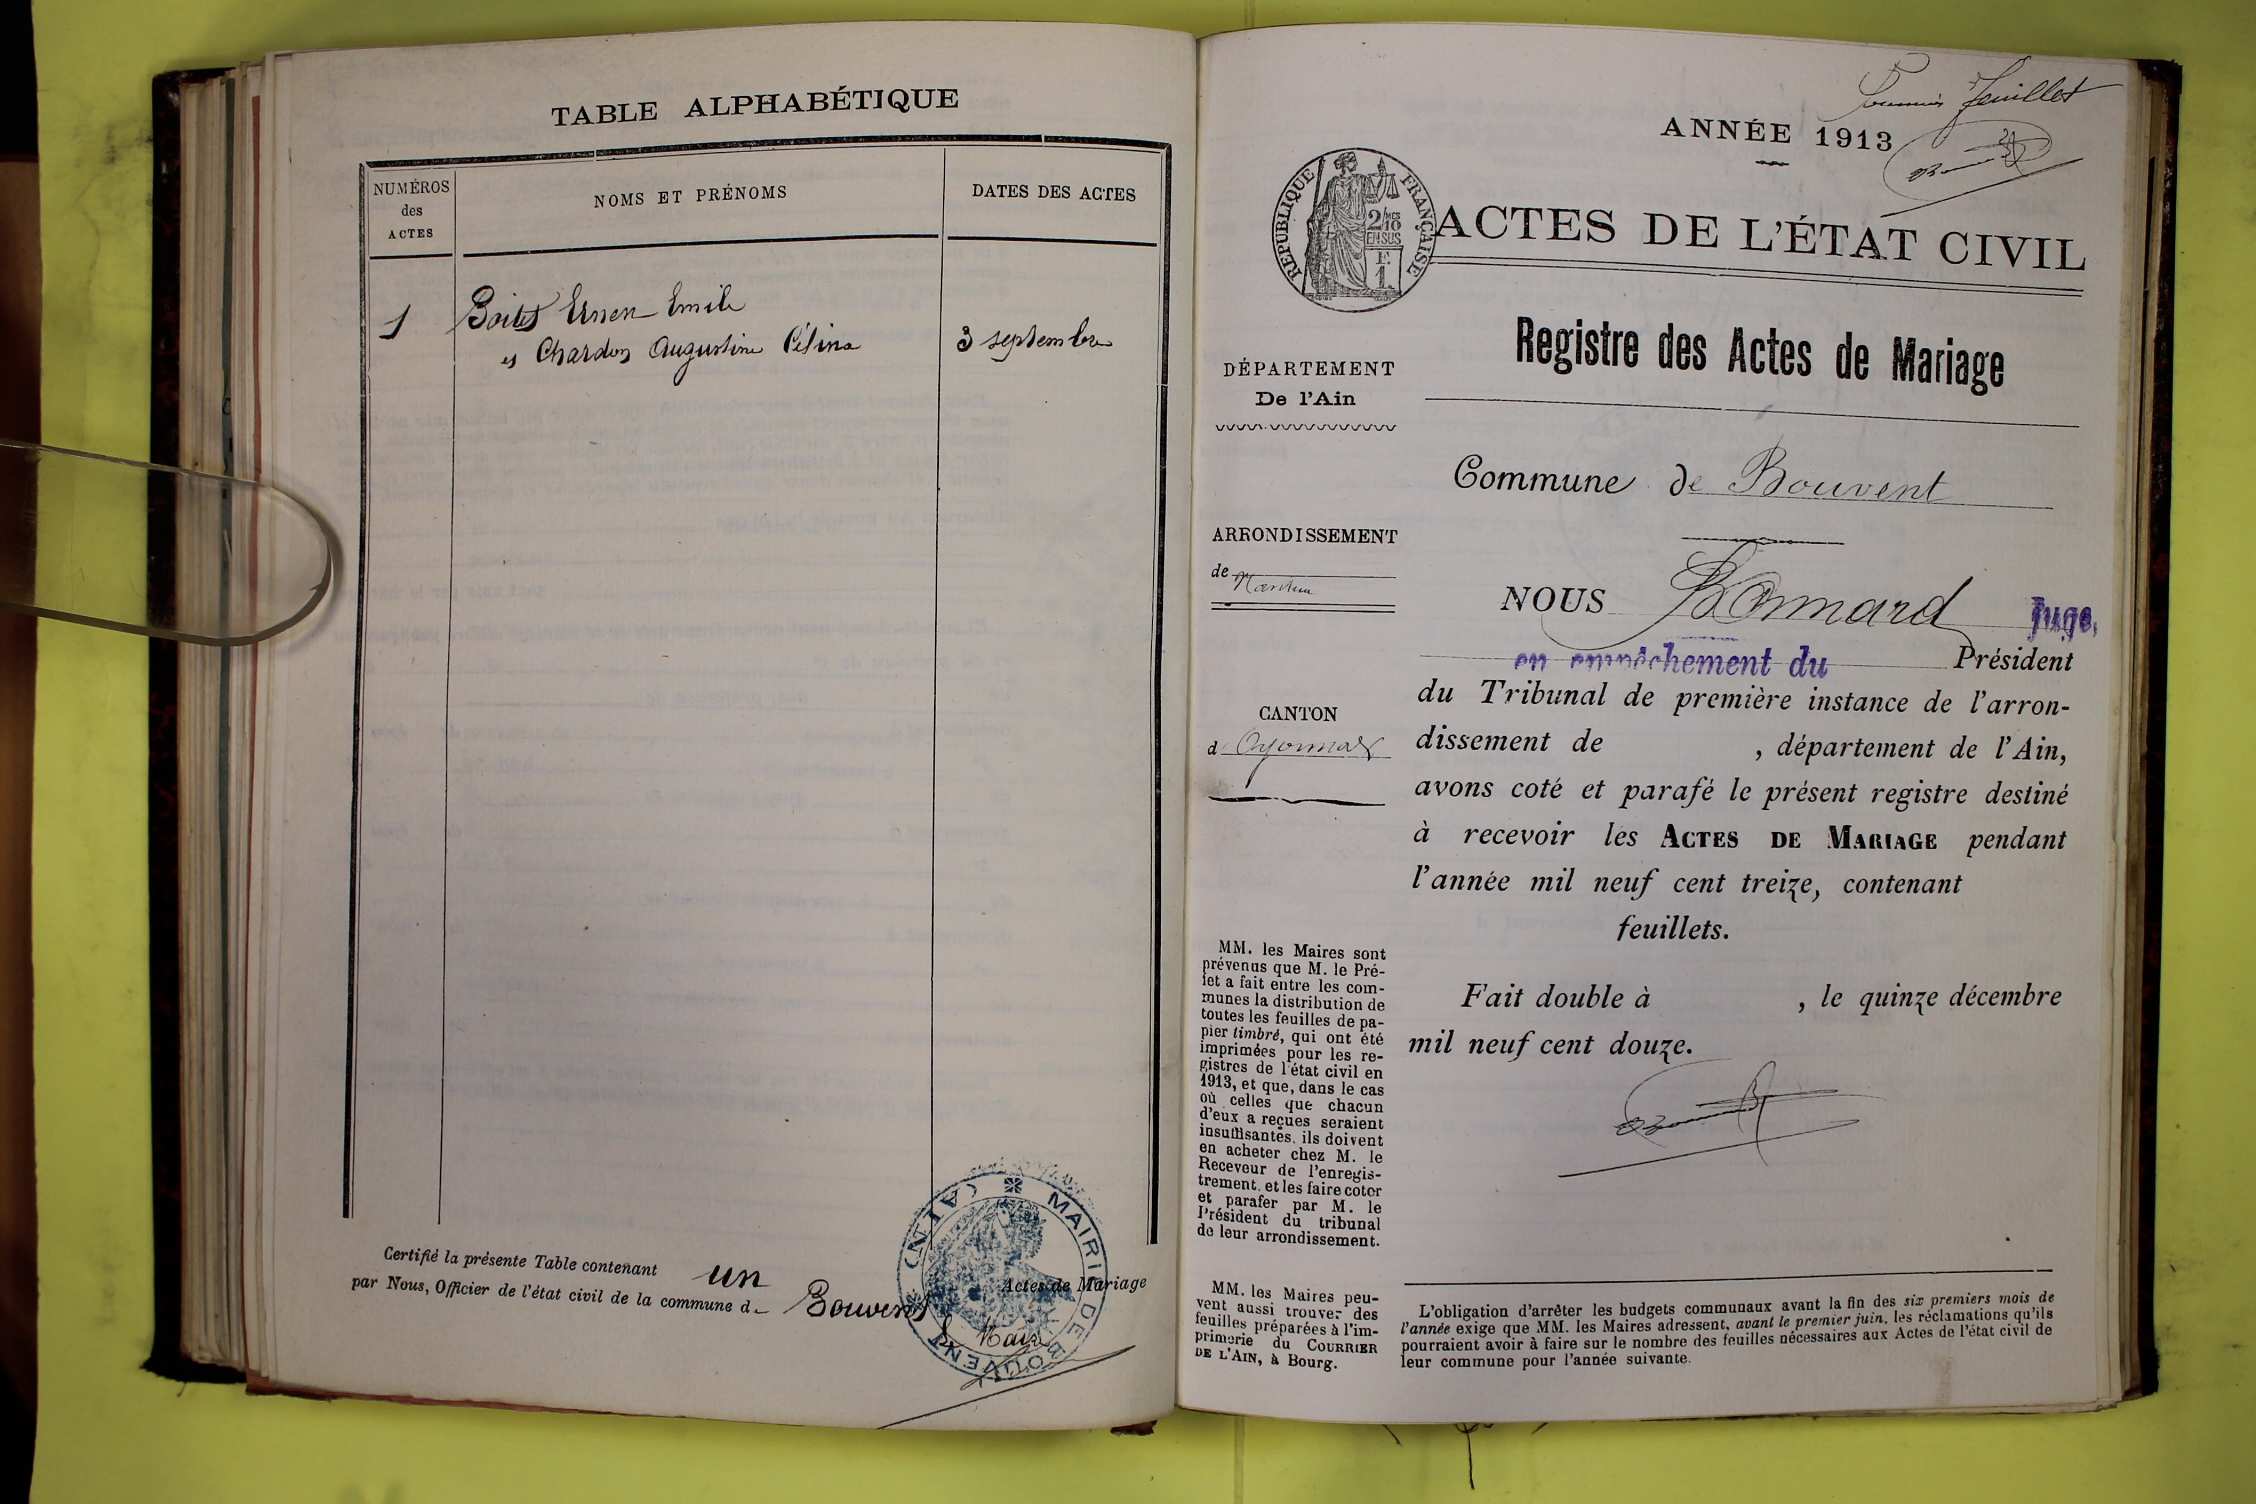 TABLE ALPHABÉTIQUE
NUMÉROS
des
ACTES
NOMS ET PRÉNOMS
DATES DES ACTES
1
Emile
et Chardon Augustine Célina
3 septembre
Certifié la présente Table contenant un Actes de Mariage
par Nous, Officier de l'état civil de la commune de Bouvent
Le Maire
MAIRIE DE BOUVENT (AIN)
Premier feuillet
ANNÉE 1913
RÉPUBLIQUE FRANÇAISE
2/10 MES
EN SUS
F.
1
ACTES DE L'ÉTAT CIVIL
Registre des Actes de Mariage
DÉPARTEMENT
De l'Ain
Commune de Bouvent
ARRONDISSEMENT
de Nantua
CANTON
d'Oyonnax
NOUS Bonnard Juge,
en empêchement du Président
du Tribunal de première instance de l'arron-
dissement de , département de l'Ain,
avons coté et parafé le présent registre destiné
à recevoir les ACTES DE MARIAGE pendant
l'année mil neuf cent treize, contenant
feuillets.
Fait double à , le quinze décembre
mil neuf cent douze.
MM. les Maires sont
prévenus que M. le Pré-
fet a fait entre les com-
munes la distribution de
toutes les feuilles de pa-
pier timbré, qui ont été
imprimées pour les re-
gistres de l'état civil en
1913, et que, dans le cas
où celles que chacun
d'eux a reçues seraient
insuffisantes, ils doivent
en acheter chez M. le
Receveur de l'enregis-
trement, et les faire coter
et parafer par M. le
Président du tribunal
de leur arrondissement.
MM. les Maires peu-
vent aussi trouver des
feuilles préparées à l'im-
primerie du COURRIER
DE L'AIN, à Bourg.
L'obligation d'arrêter les budgets communaux avant la fin des six premiers mois de
l'année exige que MM. les Maires adressent, avant le premier juin, les réclamations qu'ils
pourraient avoir à faire sur le nombre des feuilles nécessaires aux Actes de l'état civil de
leur commune pour l'année suivante.